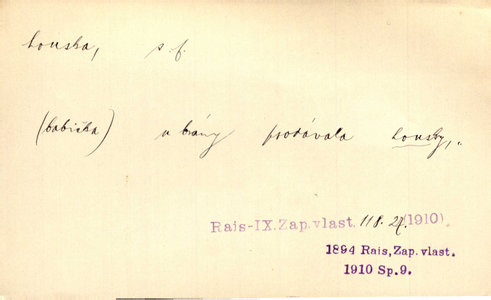 houska, s. f.
(babička) u brány prodávala housky,.
Rais-IX.Zap.vlast. 118. 27. (1910).
1894 Rais, Zap. vlast.
1910 Sp. 9.